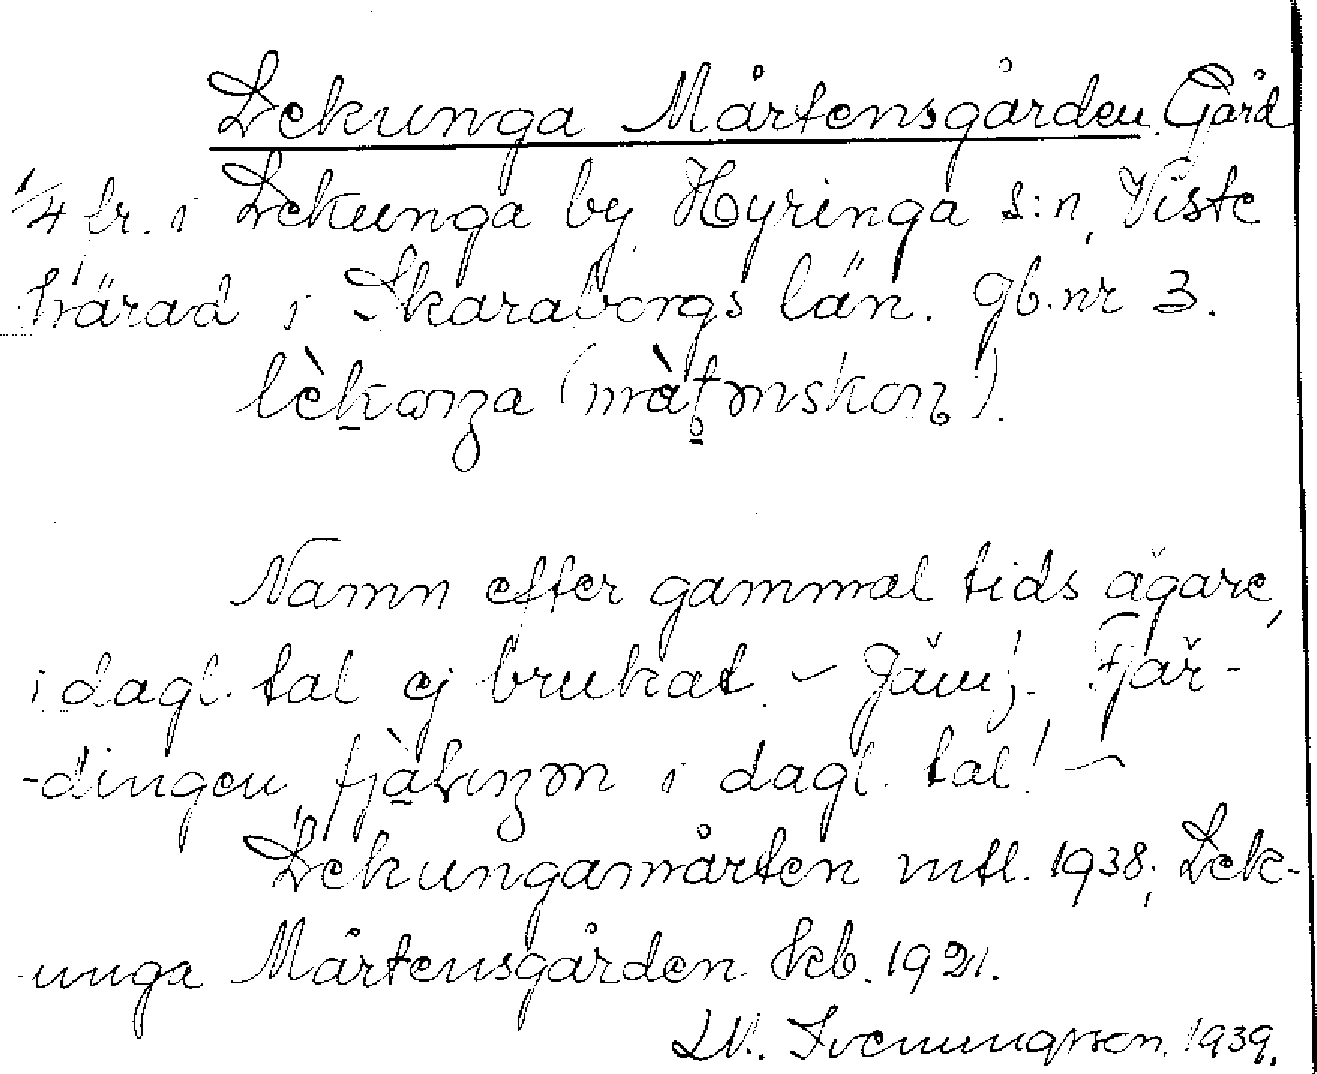 Lekunga Mårtensgården. Gård
1/4 fr. i Lekunga by, Hyringa s:n, Viste
härad i Skaraborgs län. Gb. nr 3.
Namn efter gammal tids ägare,
i dagl. tal ej brukat. – Jämf. Fjär-
-dingen, i dagl. tal! –
Lekungamårten mtl. 1938; Lek-
-unga Mårtensgården kb. 1921.
Svenungsson. 1939.